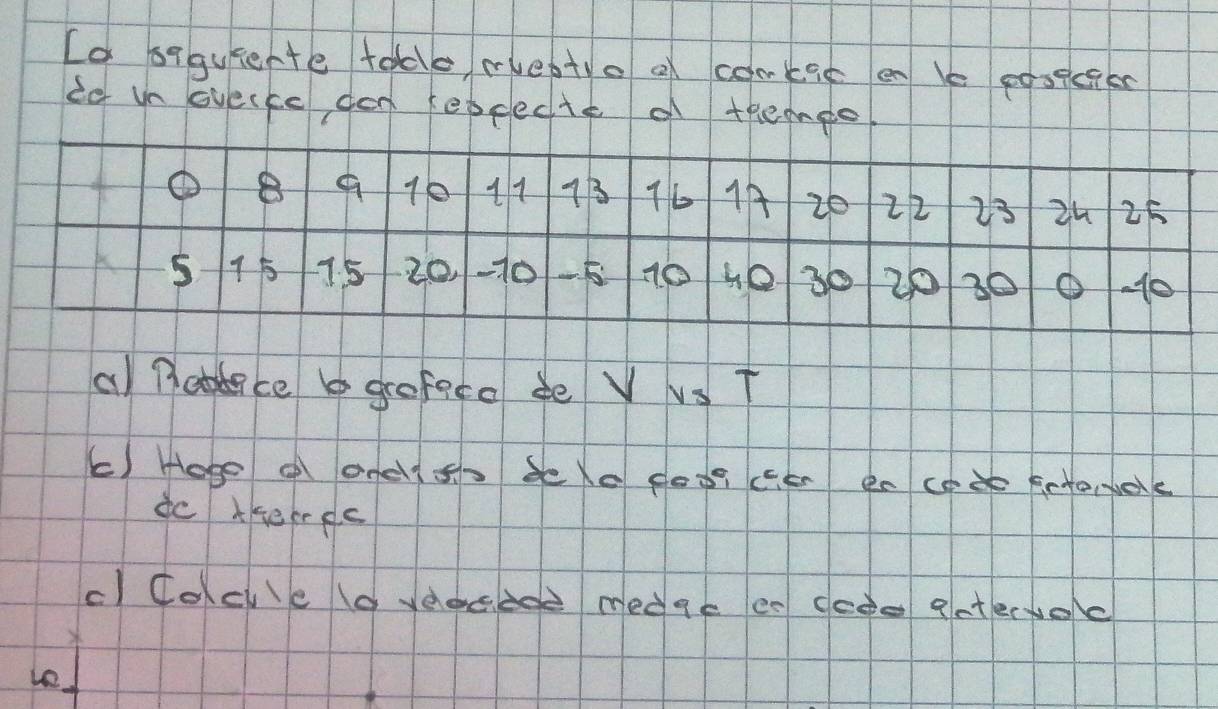 La siguiente tabla, muestra el cambio en la posicion
de un cuerpo, con respecto al tiempo.
0 8 9 10 11 13 16 17 20 22 23 24 25
5 15 15 20 -10 -5 10 40 30 20 30 0 -10
a) Realice la grafica de V vs T
b) Haga el analisis de la posicion en cada intervalo
de tiempo
c) Calcule la velocidad media en cada intervalo